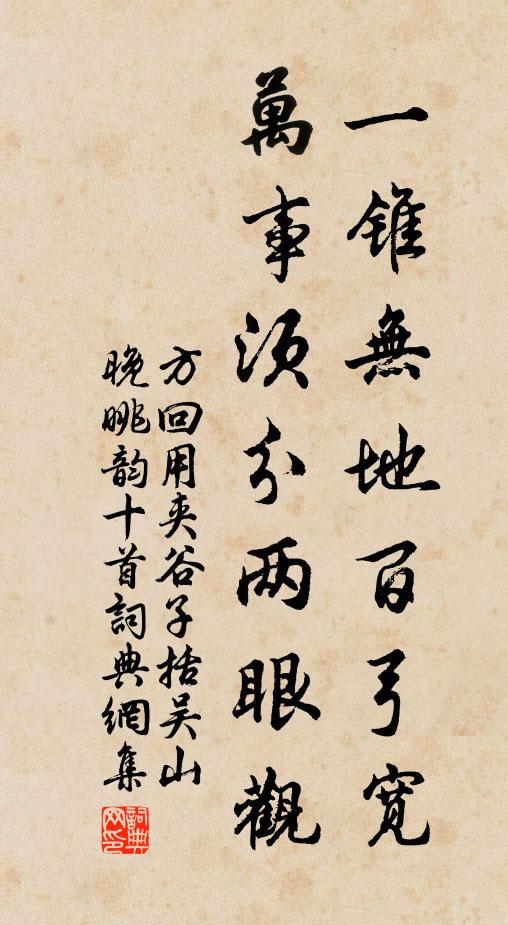 一錐無地百弓寬
萬事須分兩眼觀
方回用夾谷子括吴山
晚眺韵十首詞典網集
詞典网印